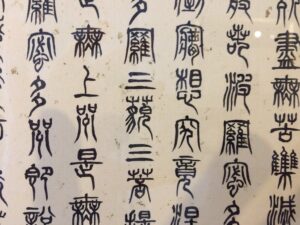 死盡無苦集滅
般若波羅蜜多
倒夢想究竟涅
多羅三藐三菩提
是無上咒是無
羅蜜多咒即說